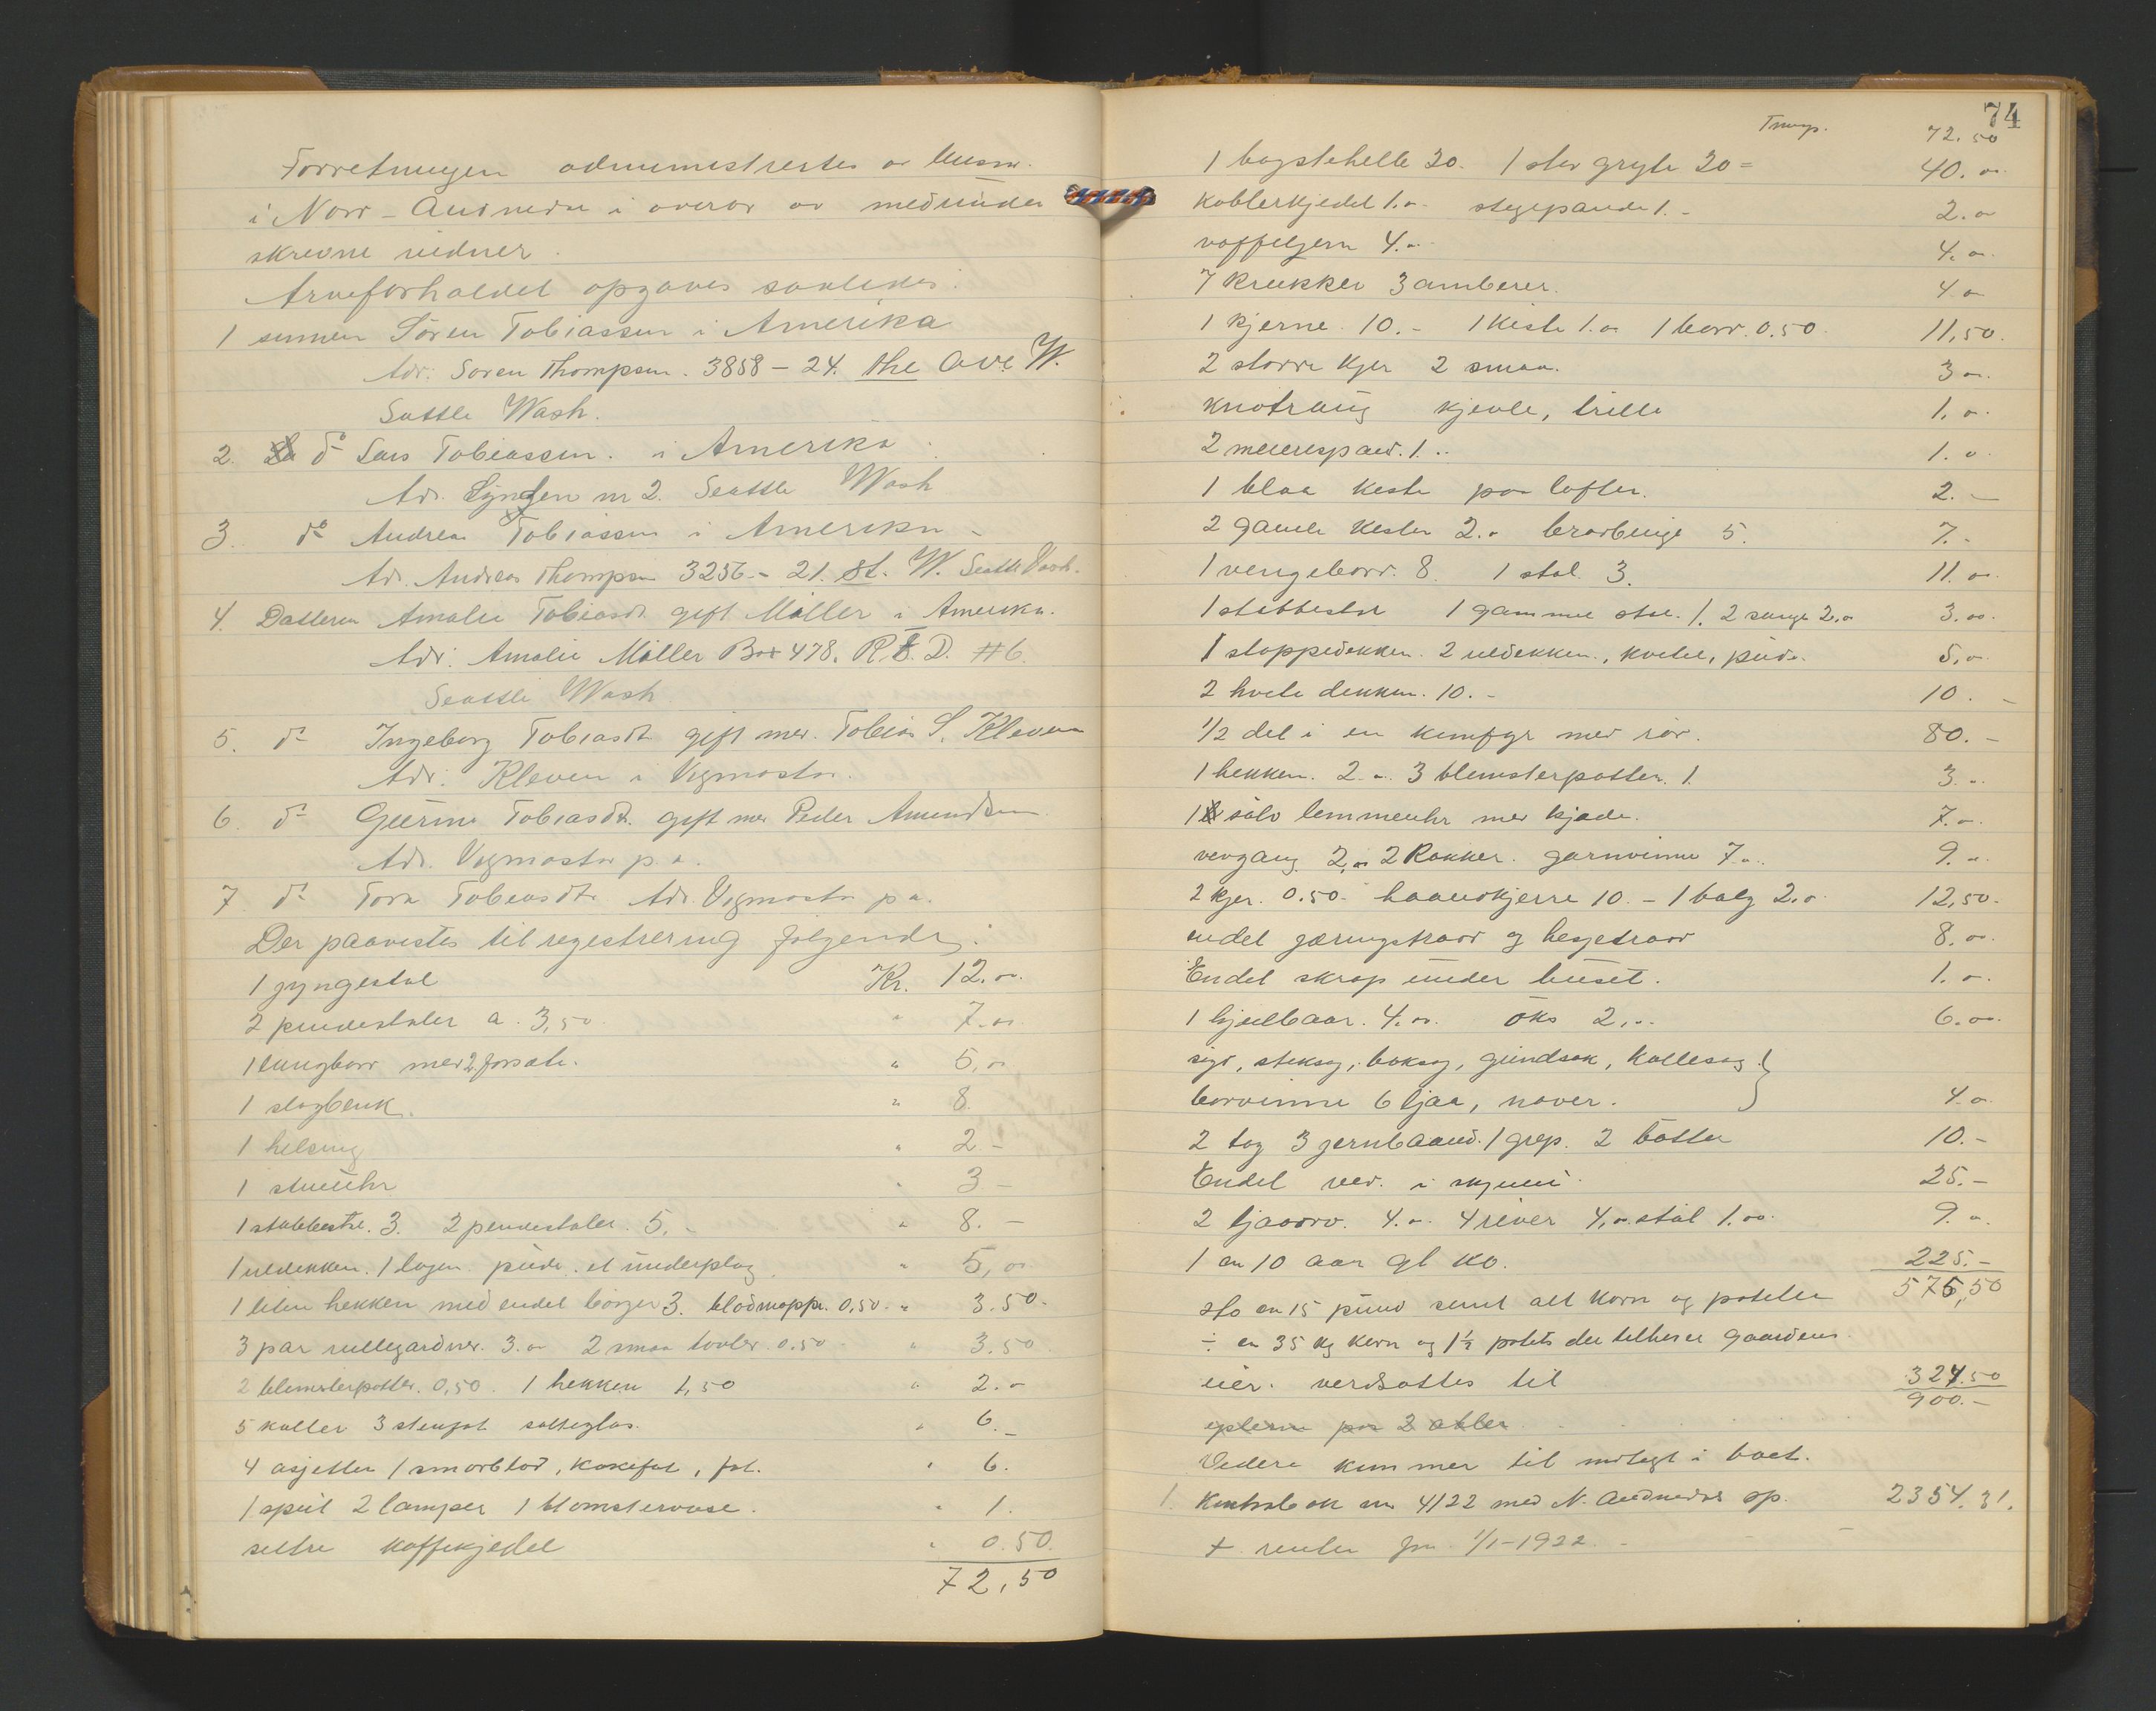 Forretningen administrertes av lensm.
i Nord-Audnedal i overvær av medunder
skrevne vidner.
Arveforholdet opgaves saaledes:
1 sønnen Sören Tobiassen i Amerika
Adr: Soren Thompson. 3858 - 24. the Ave W.
Seattle Wash.
2. do Lars Tobiassen. i Amerika.
Adr. nr 2. Seattle Wash
3. do Andreas Tobiassen i Amerika -
Adr. Andreas Thompson 3256 - 21. St. W. Seattle Wash.
4. Datteren Amalie Tobiasdt. gift Möller i Amerika.
Adr: Amalie Möller Box 478. R.F.D. #6.
Seattle Wash
5. do Ingeborg Tobiasdt gift med Tobias S. Kleven
Adr: Kleven i Vigmostad.
6. do Gurine Tobiasdt. gift med Peder Amundsen
Adr. Vigmostad p.a.
7. do Tora Tobiasdt. Adr. Vigmostad p.a.
Der paavistes til registrering følgende:
1 gyngestol Kr. 12.00
2 pindestoler a. 3,50 " 7.00
1 langbord med 2 forsæt. " 5,00
1 slagbenk. " 8
1 helseng " 2 -
1 stueuhr " 3 -
1 stabbestol. 3. 2 pindestoler. 5. - " 8. -
1 uldekken. 1 lagen. pude. et underplag " 5,00
1 liten hekken med endel bøger 3. 0,50. " 3.50.
3 par rullegardiner. 3.00 2 smaa tavler. 0.50 - " 3.50
2 blomsterpotter. 0,50. 1 hekken 1,50 " 2.-
5 kaller 3 stenfat salteglas. " 6.-
4 asjetter 1 smørblad, kakefat, fat. " 6.
1 speil 2 lamper 1 blomstervase. " 1.
kaffekjedel " 0.50.
72,50
74
Transp. 72.50
1 bagstehelle 20. 1 stor gryte 20 = 40.00
kobberkjedel 1.00 stegepande 1. - 2.00
vaffeljern 4.00 4.00
7 krukker 3 ambarer. 4.00
1 kjerne 10. - 1 kiste 1.00 1 bord. 0.50. 11,50.
2 større kjer 2 smaa. 3 00
kjevle, trille 1.00
2 meierispand. 1. 1.00
1 blaa kiste paa loftet. 2. -
2 gamle kister 2.00 brødbinge 5. 7. -
1 vengebord. 8. 1 stol 3. 11.00
1 stabbestol 1 gammel stol. 1. 2 senge 2.00 3.00.
1 stoppedekken. 2 uldekken., kvitel, pude. 5,00
2 hvite dekken. 10. - 10. -
1/2 del i en komfyr med rør. 80. -
1 hekken. 2.00 3 blomsterpotter. 1. 3.00
1 sölv lommeuhr med kjede. 7.00
vevgang 2,00 2 Rokker. garnvinne 7.00 9.00
2 kjer. 0.50. haandkjerre 10. - 1 balg 2.00 12,50.
endel gjæringstraad og hesjetraad 8.00
Endel skrap under huset. 1.00
1 hjulbaar. 4.00. öks 2.00. 6.00.
sigd, stiksag, baksag, grindsak, kallesag
borvinne 6 ljaa, naver. } 4.00
2 tog 3 jernbaand. 1 grep. 2 bøtter 10. -
Endel ved. i skjul. 25. -
2 ljaaorv. 4.00 4 river 4,00 stål 1.00. 9.00
1 en 10 aar gl ko. 225. -
576,50
sto en 15 pund samt alt korn og poteter
÷ en 35 kg korn og 1½ potet der tilhører gaardens
eier. verdsattes til 324.50
900. -
eplerne paa 2 abler
Videre kommer til indtægt i boet.
1. Kontrabok nr 4122 med N. Audnedal sp. 2354.31.
+ renter fra 1/1-1922. -